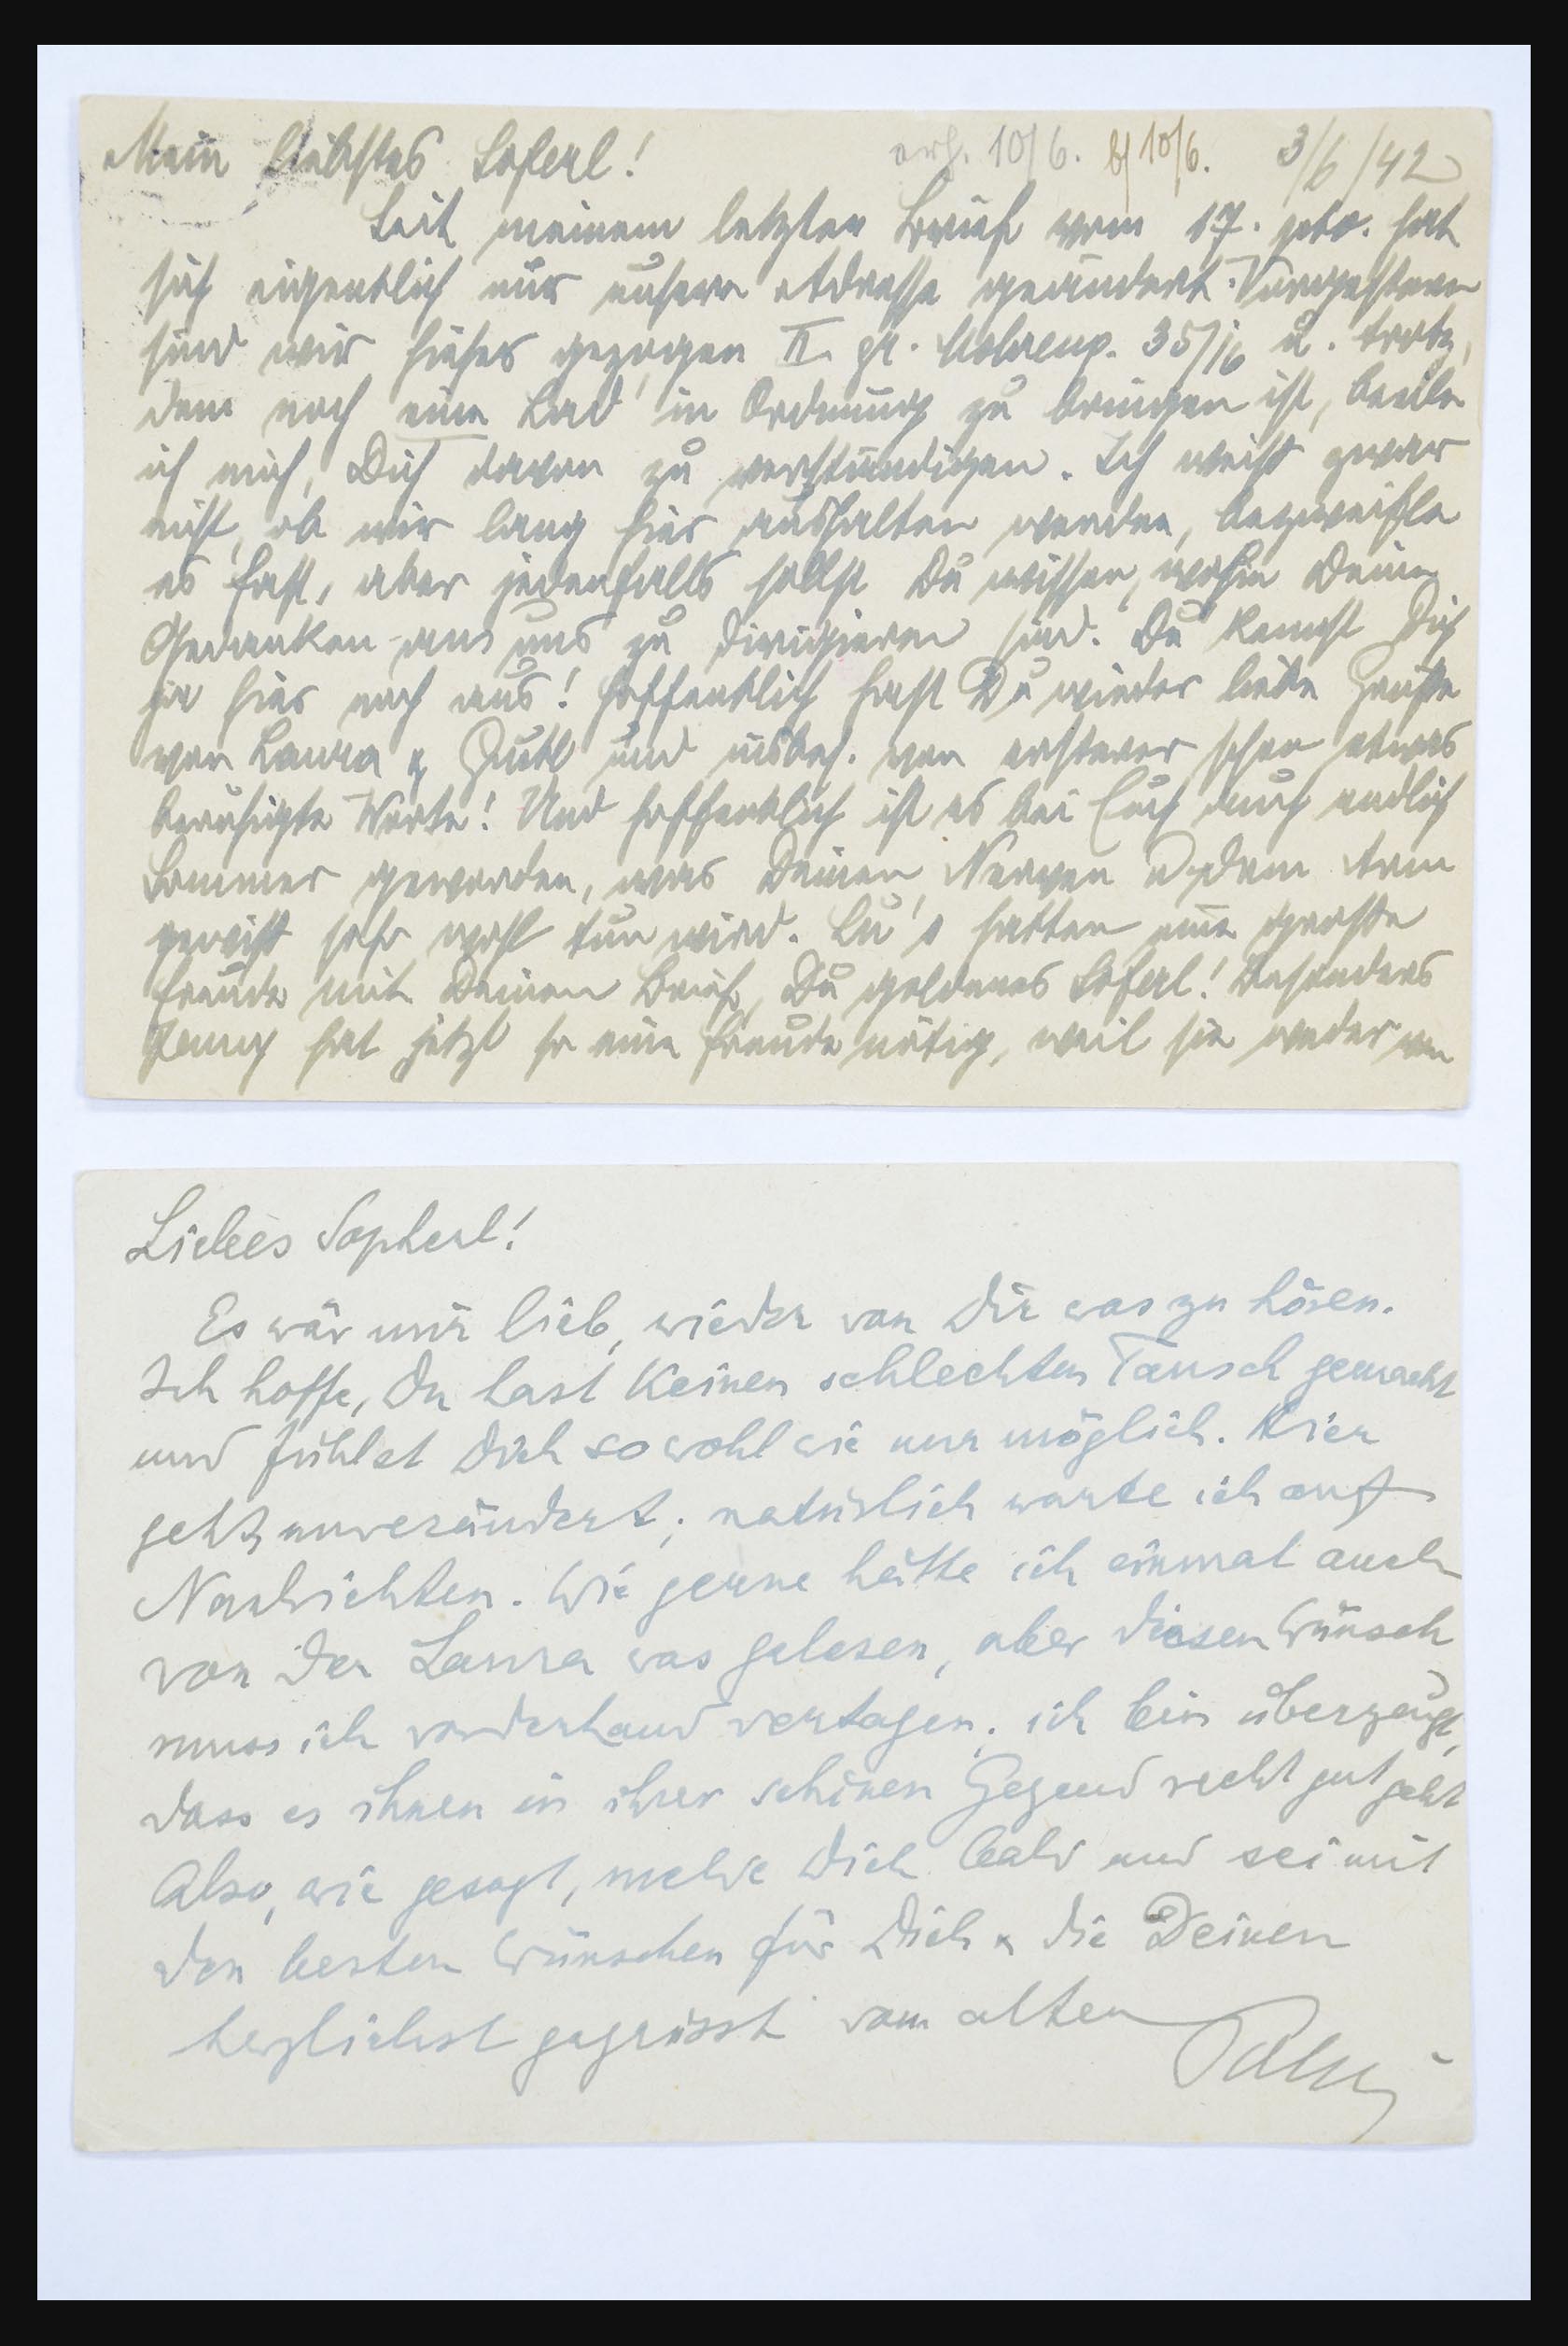 Mein liebstes Soferl! erh. 10/6. b/ 10/6. 3/6/42
Seit meinem letzten Brief vom 17. pto. hat
sich eigentlich nur unsere Adresse geändert. Vorgestern
sind wir hieher gezogen II. gr. Mohreng. 35/16 u. trotz
dem noch eine Lad in Ordnung zu bringen ist, beeile
ich mich, Dich davon zu verständigen. Ich weiß zwar
nicht, ob wir lang hier aushalten werden, bezweifle
es fast, aber jedenfalls sollst Du wissen, wohin Deine
Gedanken an uns zu dirigieren sind. Du kennst Dich
ja hier noch aus! Hoffentlich hast Du wieder liebe Grüße
von Laura & Gustl und insbes. von ersterer schon etwas
beruhigte Worte! Und hoffentlich ist es bei Euch auch endlich
Sommer geworden, was Deinen Nerven u. dem Arm
gewiß sehr wohl tun wird. Lu's hatten eine große
Freude mit Deinem Brief, Du goldenes Soferl! Besonders
Jenny hat jetzt so eine Freude nötig, weil sie weder von
Liebes Sopherl!
Es wär mir lieb, wieder von Dir was zu hören.
Ich hoffe, Du hast keinen schlechten Tausch gemacht
und fühlst Dich so wohl wie nur möglich. Hier
geht's unverändert; natürlich warte ich auf
Nachrichten. Wie gerne hätte ich einmal auch
von der Laura was gelesen, aber diesen Wunsch
muss ich vorderhand vertagen; ich bin überzeugt,
dass es ihnen in ihrer schönen Gegend recht gut geht
Also, wie gesagt, melde Dich bald und sei mit
den besten Wünschen für Dich & die Deinen
herzlichst gegrüsst vom alten